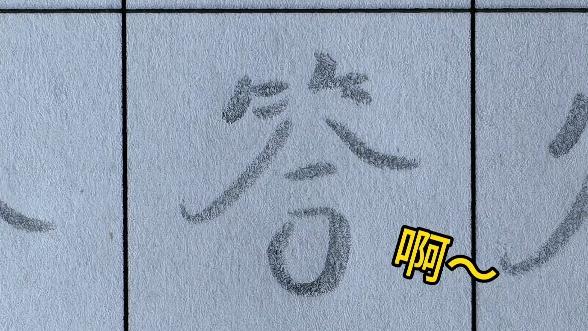 答
啊～